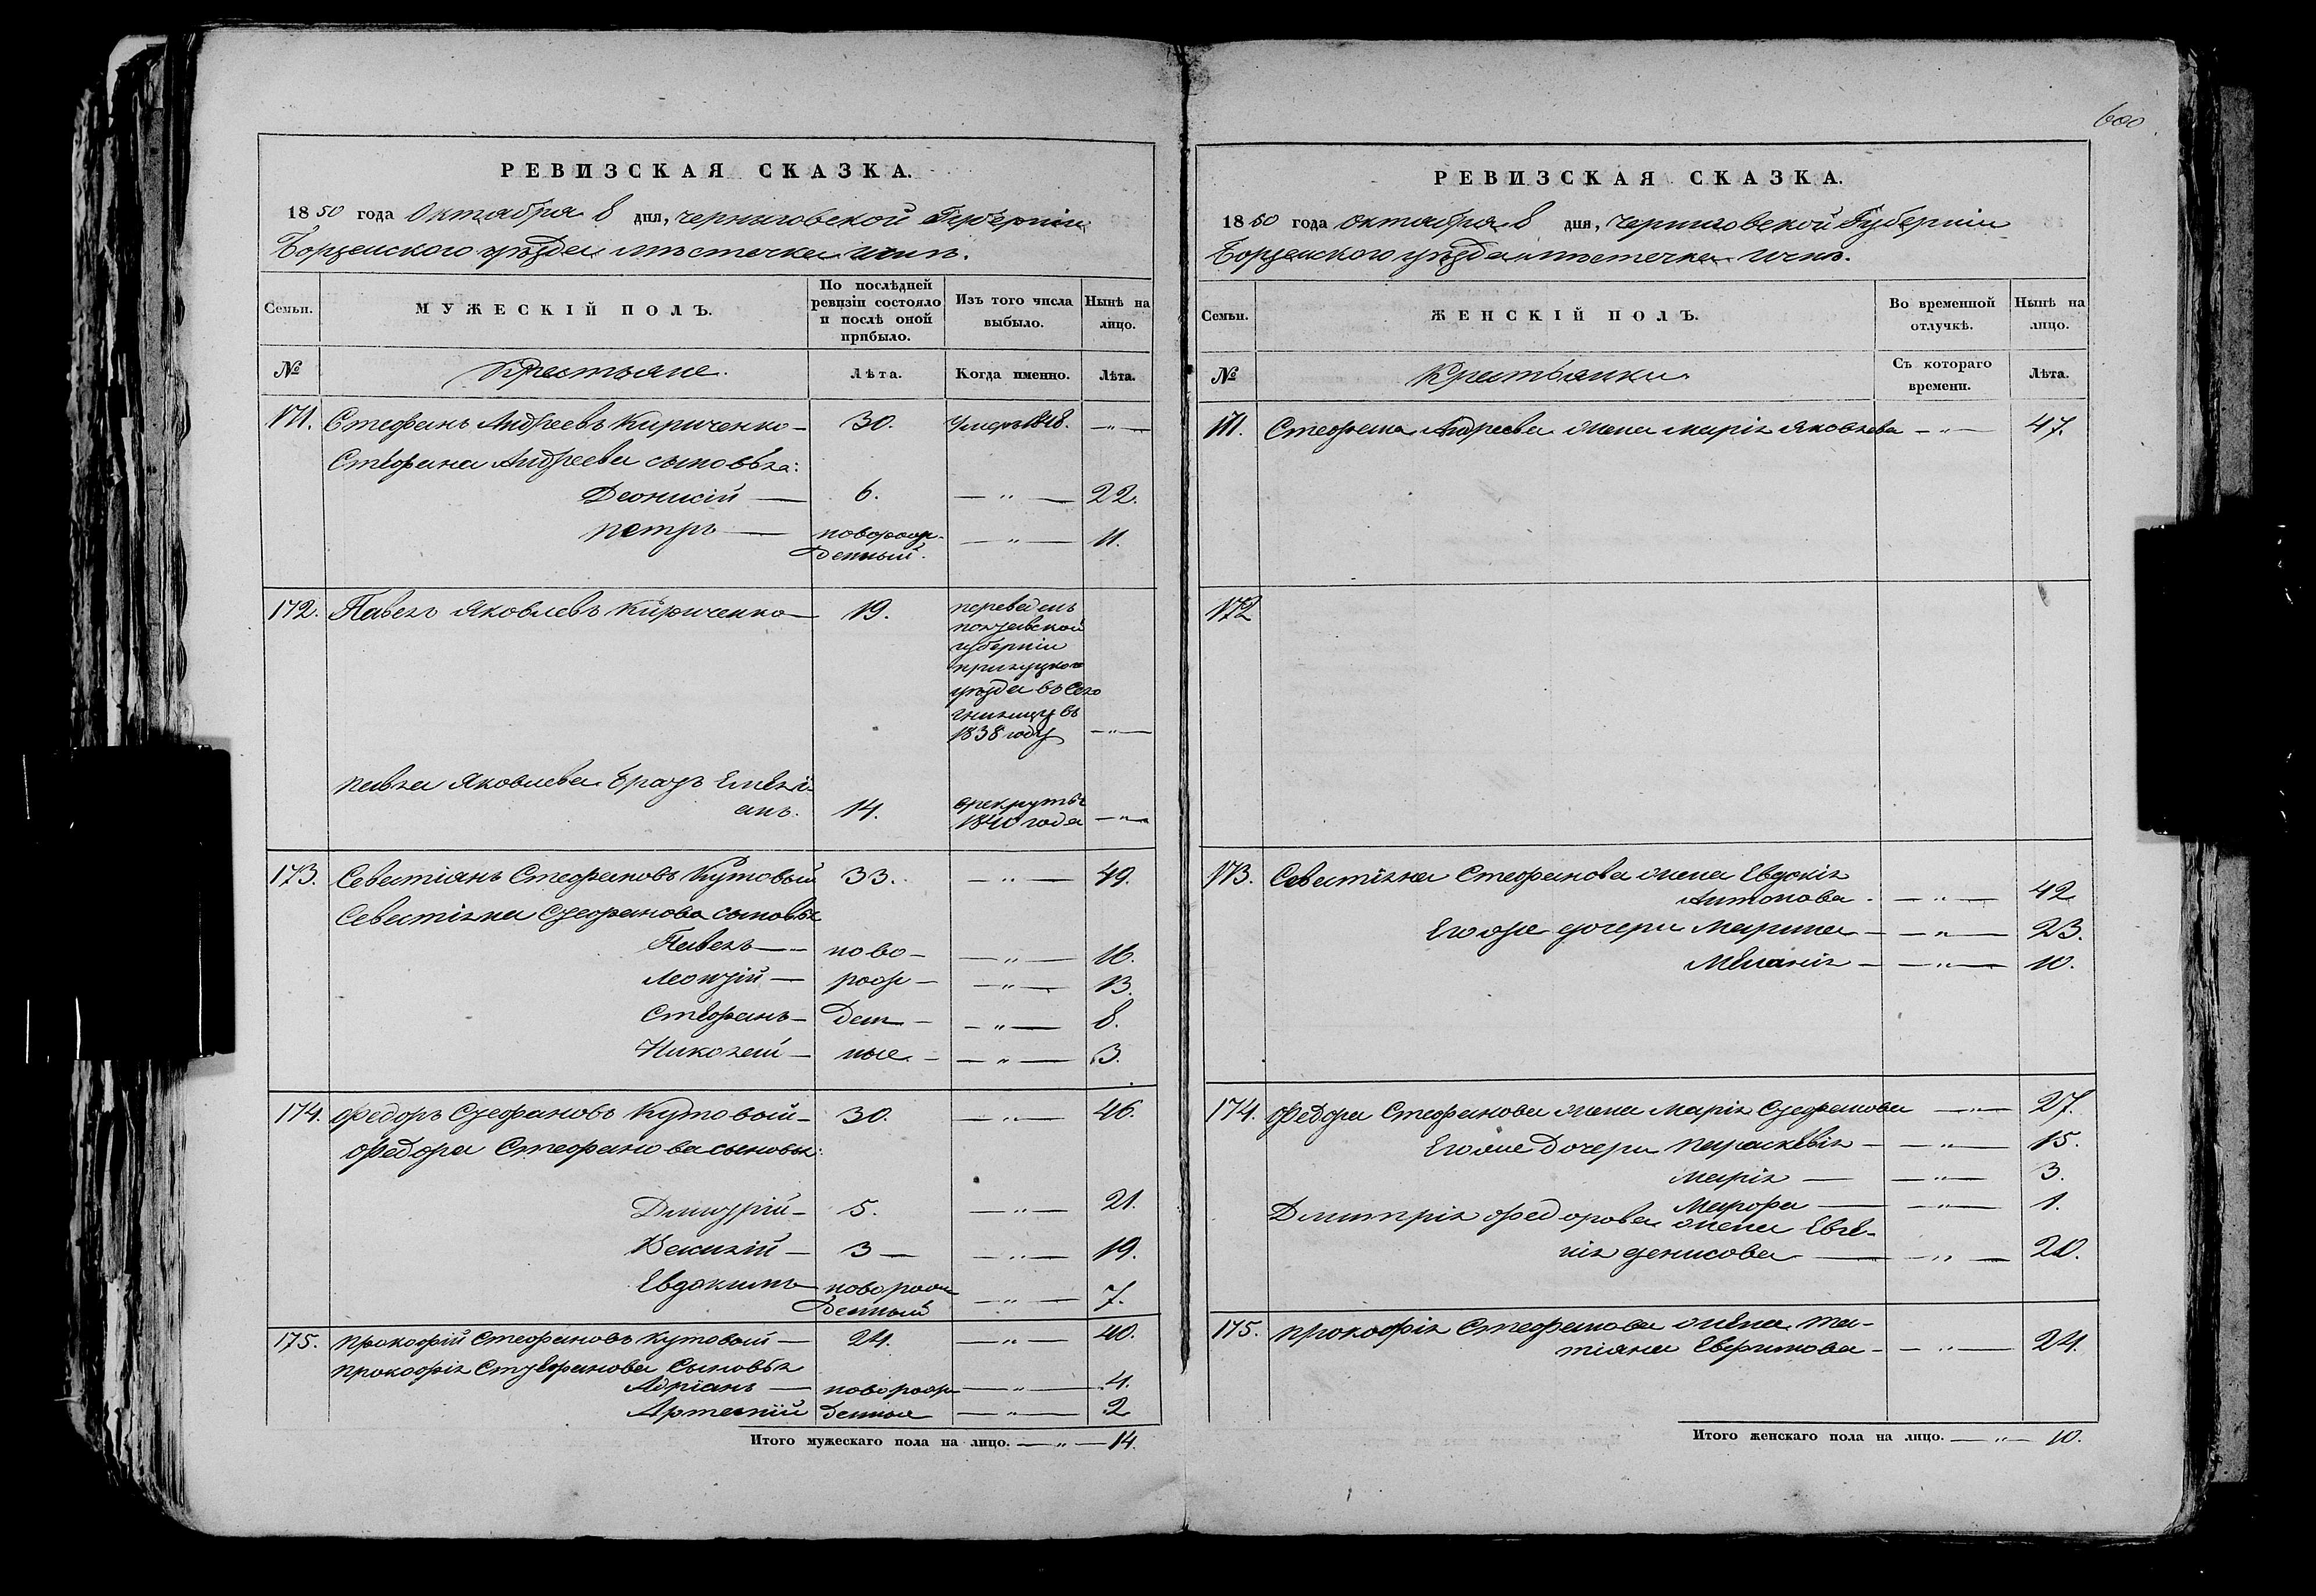 РЕВИЗСКАЯ СКАЗКА.
1850 года Октября 8 дня, Черниговской Губерніи
Борзенского уѣзда мѣстечка Ични.
Семьи. МУЖЕСКІЙ ПОЛЪ. По послѣдней ревизіи состояло и послѣ оной прибыло. Изъ того числа выбыло. Нынѣ на лицо.
№ Крестьяне. Лѣта. Когда именно. Лѣта.
171. Стефанъ Андреевъ Кириченко — 30. Умеръ 1848. — „ —
Стефана Андреева сыновья:
Деонисій — 6. — „ — 22.
Петръ — новорож-
денный. — „ — 11.
172. Павелъ Яковлевъ Кириченко — 19. переведенъ
полтавской
губерніи
прилуцкого
уѣзда въ село
гнилицу въ
1838 году — „ —
Павла Яковлева братъ Емелі-
анъ. 14. врекруты
1840 года — „ —
173. Севастіянъ Стефановъ Кутовый 33. — „ — 49.
Севастіяна Стефанова сыновья
Павелъ — ново- — „ — 16.
Леонтій — рож- — „ — 13.
Стефанъ — ден- — „ — 8.
Николай — ные. — „ — 3.
174. Федоръ Стефановъ Кутовой — 30. — „ — 46.
Федора Стефанова сыновья:
Дмитрій — 5. — „ — 21.
Василій — 3 — — „ — 19.
Евдокимъ — новорож-
денный — „ — 7.
175. Прокофій Стефановъ Кутовой — 24. — „ — 40.
Прокофія Стефанова сыновья
Адріанъ — новорож- — „ — 4.
Артемій денные — „ — 2
Итого мужескаго пола на лицо. — „ — 14.
600
РЕВИЗСКАЯ СКАЗКА.
1850 года октября 8 дня, Черниговской Губерніи
Борзенского уѣзда мѣстечка Ични.
Семьи. ЖЕНСКІЙ ПОЛЪ. Во временной отлучкѣ. Нынѣ на лицо.
№ Крестьянки. Съ котораго времени. Лѣта.
171. Стефана Андреева жена Марія Яковлева — „ — 47.
172
173. Севастіяна Стефанова жена Евдокія
Антонова. — „ — 42
Егоже дочери Марина — — „ — 23.
Меланія — — „ — 10.
174. Федора Стефанова жена Марія Стефанова — „ — 27.
Егоже дочери Параскевія — — „ — 15.
Марія — — „ — 3.
Марфа — — „ — 1.
Дмитрія Федорова жена Евге-
нія Денисова — — „ — 20.
175. Прокофія Стефанова жена Та-
тіяна Ефимова — — „ — 24.
Итого женскаго пола на лицо. — „ — 10.